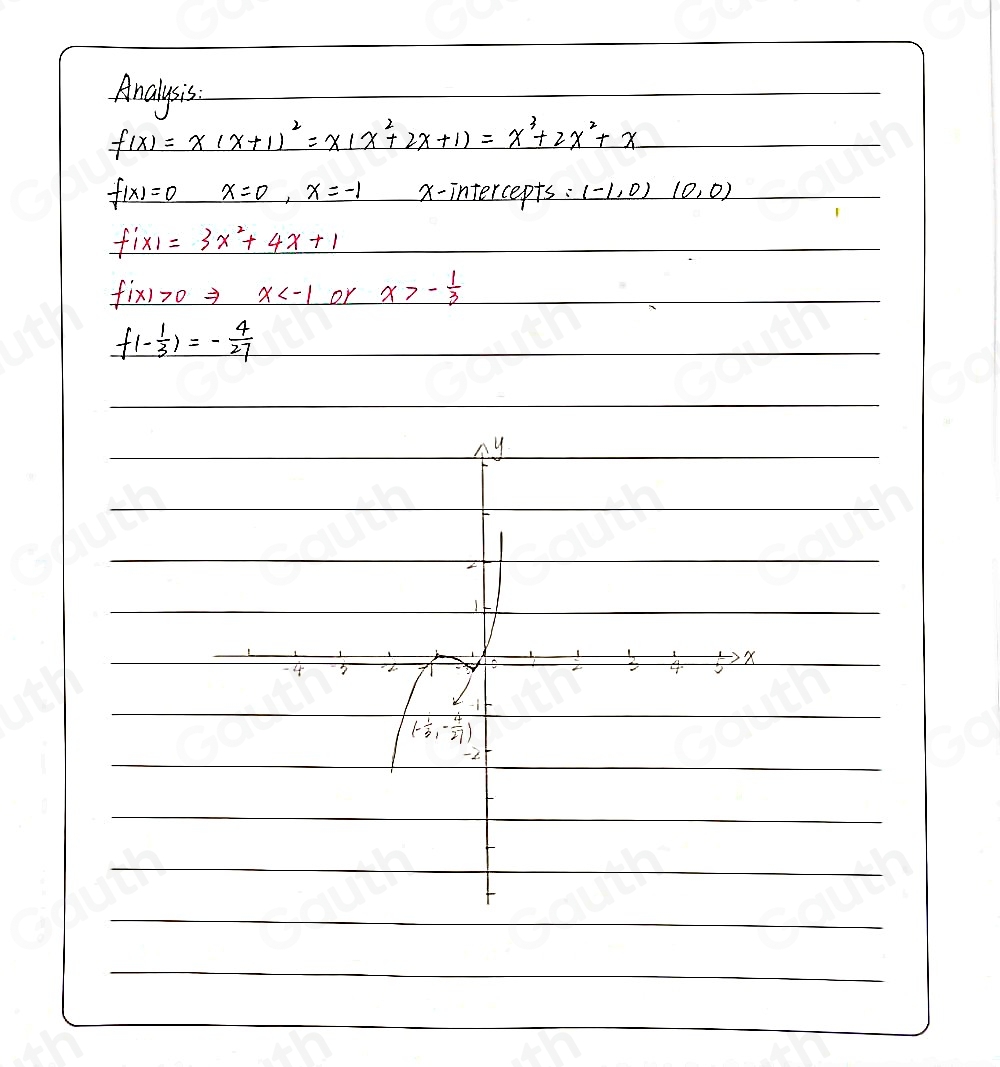 Analysis:
f(x) = x(x+1)² = x(x²+2x+1) = x³+2x²+x
f(x)=0 x=0, x=-1 x-intercepts: (-1,0) (0,0)
f'(x) = 3x²+4x+1
f'(x)>0 ⇒ x<-1 or x>-1/3
f(-1/3) = -4/27
y
2
1
-4 -3 -2 -1 0 1 2 3 4 5 x
-1
(-1/3, -4/27)
-2
Gauth